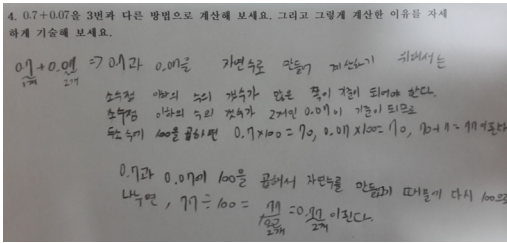 4. 0.7+0.07을 3번과 다른 방법으로 계산해 보세요. 그리고 그렇게 계산한 이유를 자세
하게 기술해 보세요.
0.7+0.07 => 0.7과 0.07을 자연수로 만들어 계산하기 위해서는
1개 2개
소수점 아래의 수의 갯수가 많은 쪽이 기준이 되어야 한다.
소수점 아래의 수의 갯수가 2개인 0.07이 기준이 되므로
두 소수에 100을 곱하면 0.7×100=70, 0.07×100=7, 70+7=77이된다
0.7과 0.07에 100을 곱해서 자연수를 만들었기 때문에 다시 100으로
나누면, 77÷100= 77/100 =0.77이된다.
2개 2개